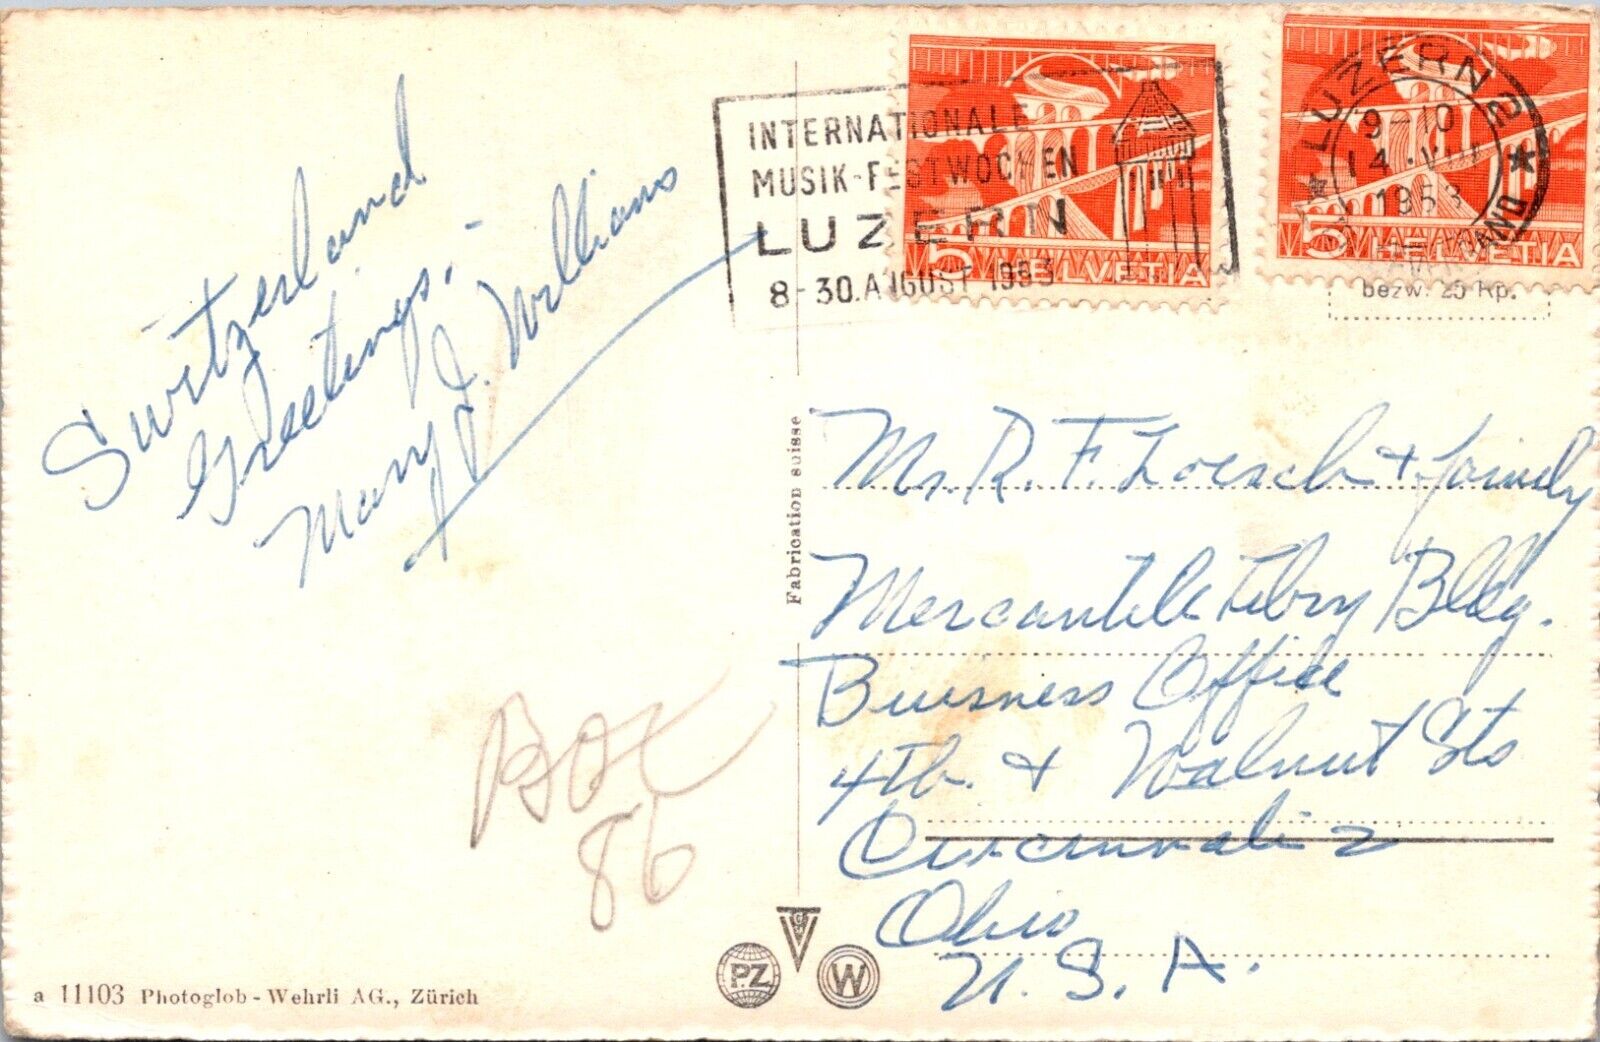 Switzerland
Greetings,
Mary J. Williams
BOX
86
a 11103 Photoglob-Wehrli AG., Zürich
Fabrication suisse
P.Z
W
INTERNATIONALE
MUSIK-FESTWOCHEN
LUZERN
8-30. AUGUST 1953
5 HELVETIA
5 HELVETIA
LUZERN 2
9-10
14.VIII
1953
bezw. 25 Rp.
Mr. R. F. Loesch & family
Mercantile Libry Bldg.
Business Office
4th. & Walnut Sts
Cincinnati 2
Ohio
U. S. A.